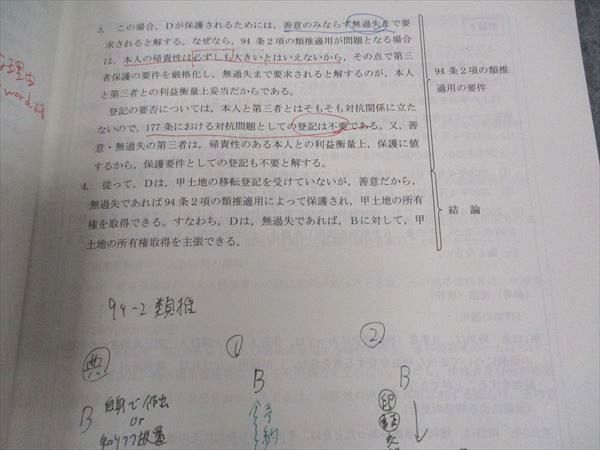 3. この場合,Dが保護されるためには,善意のみならず無過失まで要
求されると解する。なぜなら,94条2項の類推適用が問題となる場合
は,本人の帰責性は必ずしも大きいとはいえないから,その点で第三
者保護の要件を厳格化し,無過失まで要求されると解するのが,本人
と第三者との利益衡量上妥当だからである。
登記の要否については,本人と第三者とはそもそも対抗関係に立た
ないので,177条における対抗問題としての登記は不要である。又,善
意・無過失の第三者は,帰責性のある本人との利益衡量上,保護に値
するから,保護要件としての登記も不要と解する。
4. 従って,Dは,甲土地の移転登記を受けていないが,善意だから,
無過失であれば94条2項の類推適用によって保護され,甲土地の所有
権を取得できる。すなわち,Dは,無過失であれば,Bに対して,甲
土地の所有権取得を主張できる。
94条2項の類推
適用の要件
結論
理由
word
94-2 類推
典
B 自身で作出
or
知りつつ放置
①
B
予
約
②
B